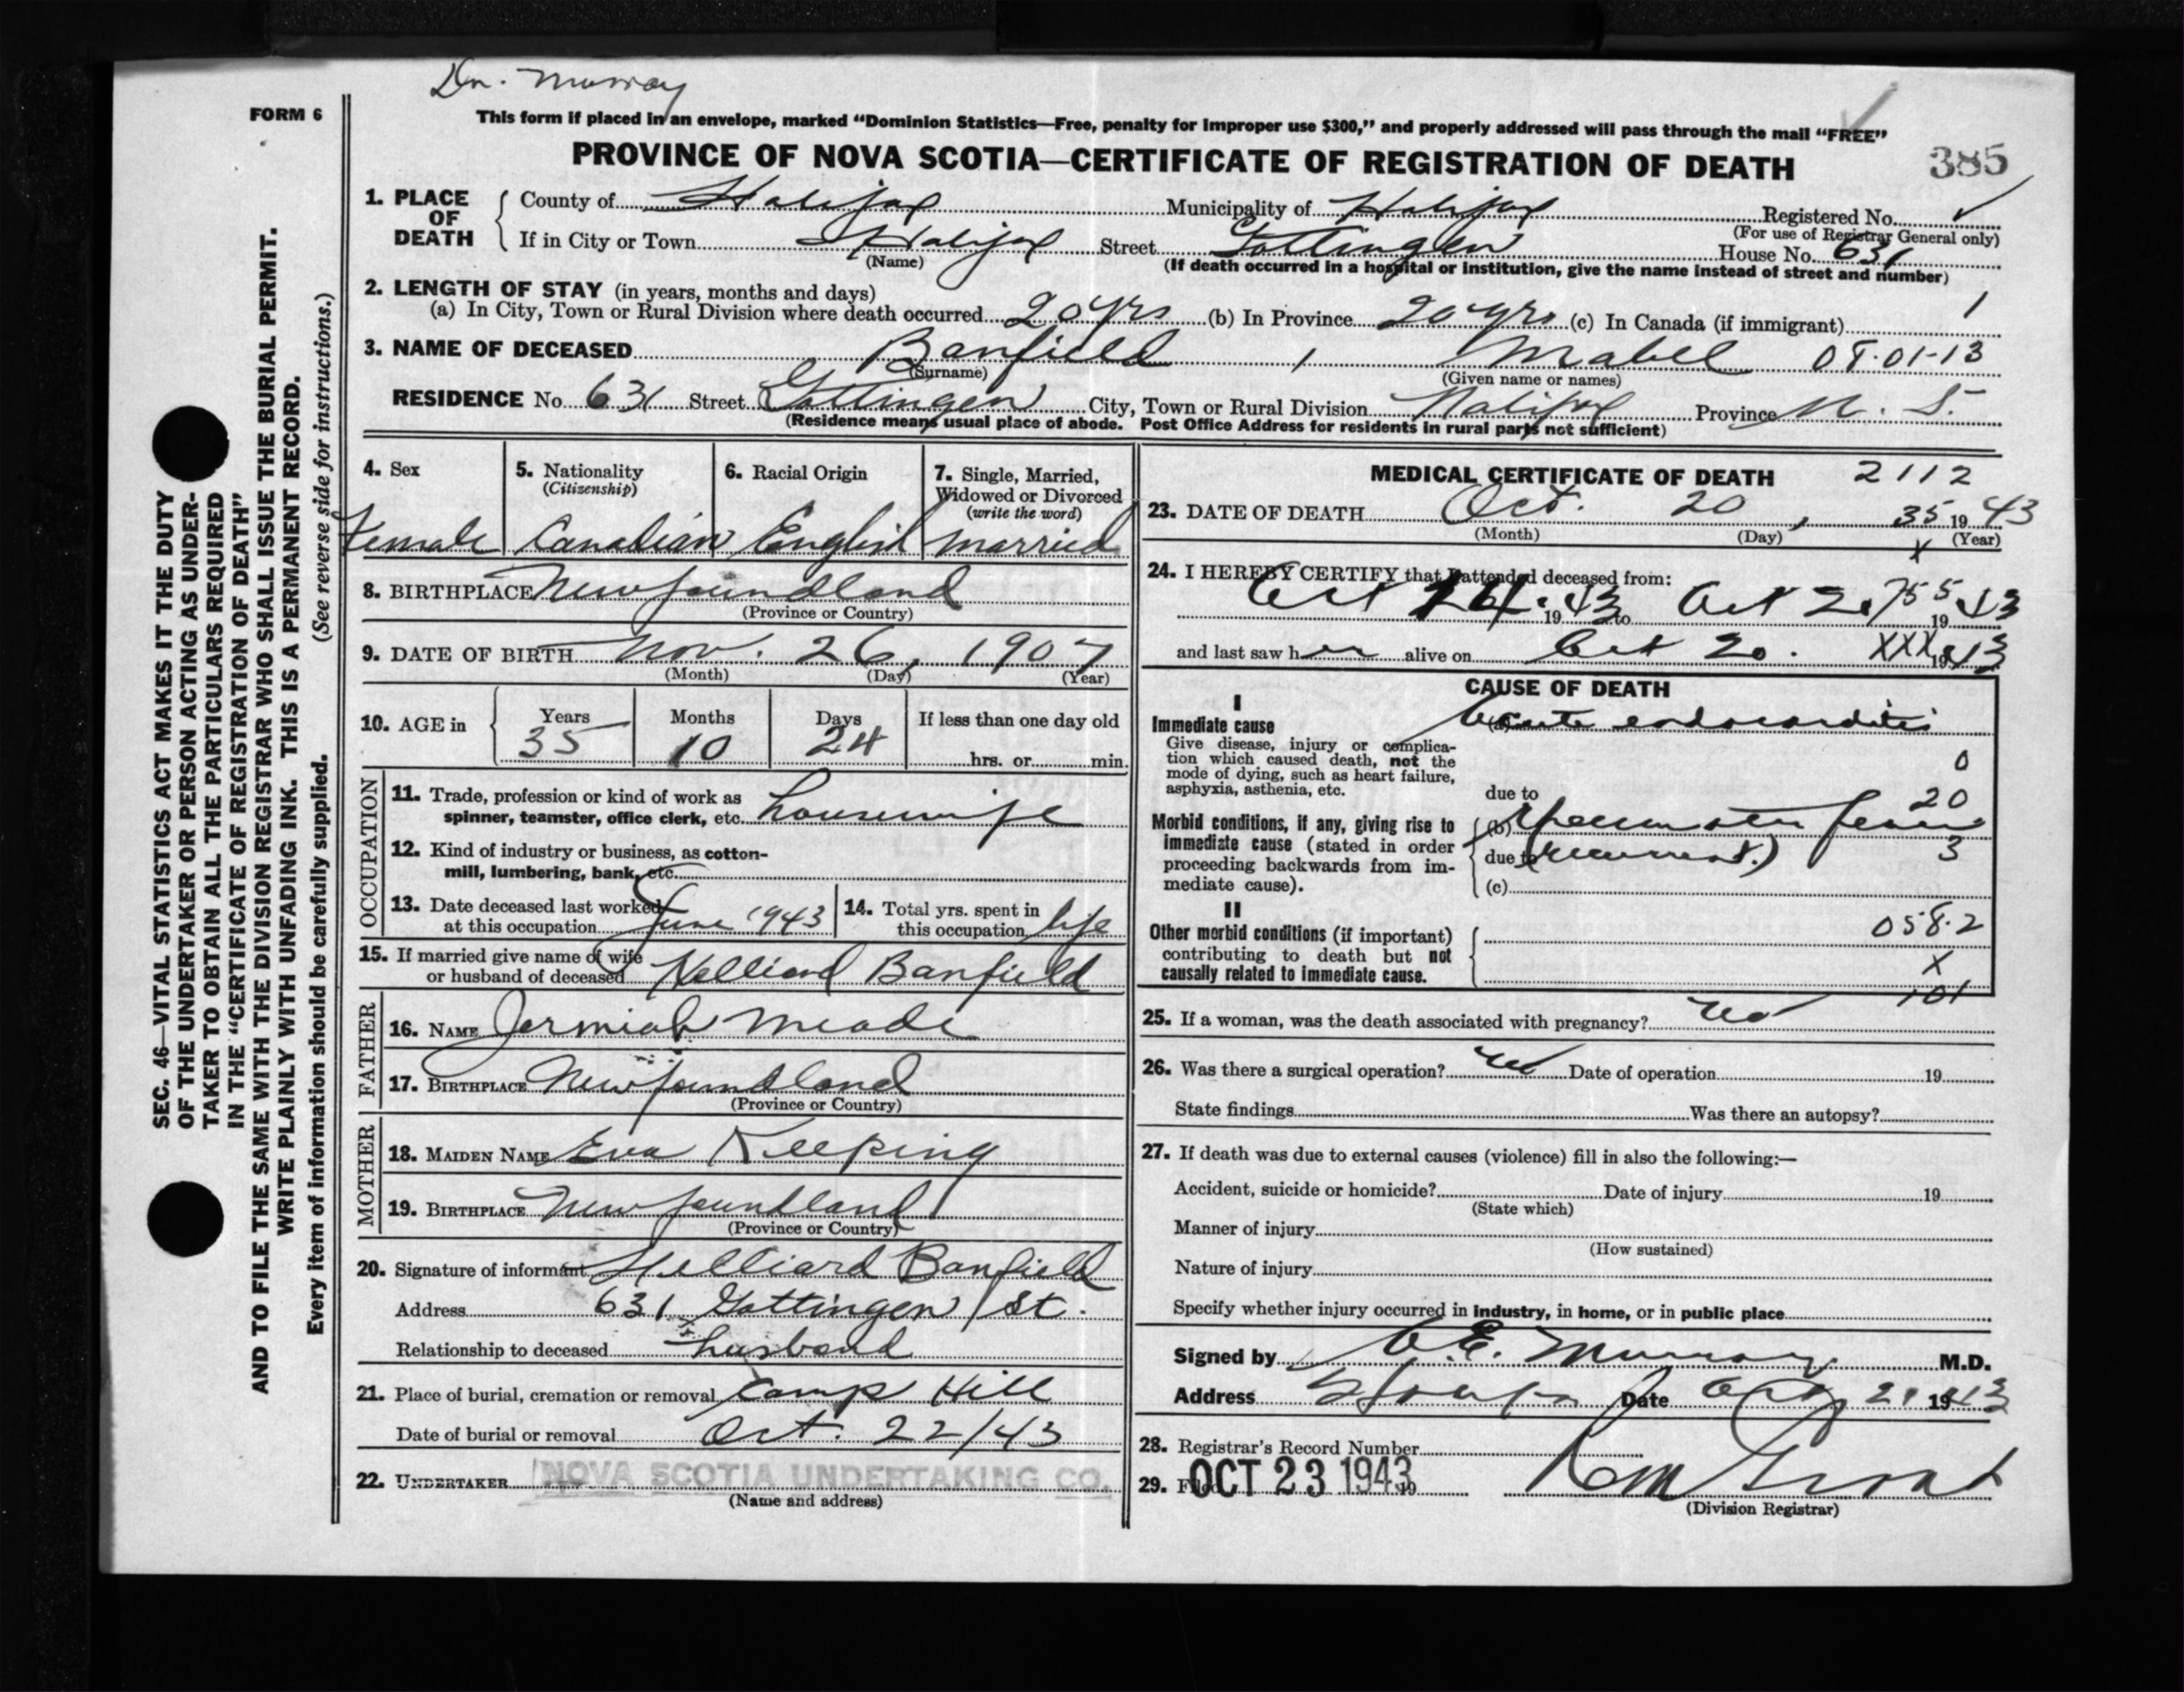 Dr. Murray
FORM 6
This form if placed in an envelope, marked “Dominion Statistics—Free, penalty for improper use $300,” and properly addressed will pass through the mail “FREE”
PROVINCE OF NOVA SCOTIA—CERTIFICATE OF REGISTRATION OF DEATH
385
1. PLACE OF DEATH
County of Halifax Municipality of Halifax Registered No.
(For use of Registrar General only)
If in City or Town Halifax Street Gottingen House No. 631
(Name)
(If death occurred in a hospital or institution, give the name instead of street and number)
2. LENGTH OF STAY (in years, months and days)
(a) In City, Town or Rural Division where death occurred 20 yrs (b) In Province 20 yrs (c) In Canada (if immigrant) 1
3. NAME OF DECEASED Banfield , Mabel 08-01-13
(Surname) (Given name or names)
RESIDENCE No. 631 Street Gottingen City, Town or Rural Division Halifax Province N. S.
(Residence means usual place of abode. Post Office Address for residents in rural parts not sufficient)
4. Sex
Female
5. Nationality
(Citizenship)
Canadian
6. Racial Origin
English
7. Single, Married,
Widowed or Divorced
(write the word)
married
8. BIRTHPLACE Newfoundland
(Province or Country)
9. DATE OF BIRTH Nov. 26, 1907
(Month) (Day) (Year)
10. AGE in Years Months Days If less than one day old
35 10 24 hrs. or min.
OCCUPATION
11. Trade, profession or kind of work as
spinner, teamster, office clerk, etc. housewife
12. Kind of industry or business, as cotton-
mill, lumbering, bank, etc.
13. Date deceased last worked
at this occupation June 1943
14. Total yrs. spent in
this occupation life
15. If married give name of wife
or husband of deceased Helliard Banfield
FATHER
16. NAME Jermiah Meade
17. BIRTHPLACE Newfoundland
(Province or Country)
MOTHER
18. MAIDEN NAME Eva Keeping
19. BIRTHPLACE Newfoundland
(Province or Country)
20. Signature of informant Helliard Banfield
Address 631 Gottingen St.
Relationship to deceased husband
21. Place of burial, cremation or removal Camp Hill
Date of burial or removal Oct. 22/43
22. UNDERTAKER NOVA SCOTIA UNDERTAKING CO.
(Name and address)
MEDICAL CERTIFICATE OF DEATH 2112
23. DATE OF DEATH Oct. 20, 35 1943
(Month) (Day) (Year)
x
24. I HEREBY CERTIFY that I attended deceased from:
Oct 1943 to Oct 20 755 1943
and last saw her alive on Oct 20. XXX 1943
CAUSE OF DEATH
I
Immediate cause (a) Acute endocarditis
Give disease, injury or complica-
tion which caused death, not the
mode of dying, such as heart failure,
asphyxia, asthenia, etc.
0
due to 20
Morbid conditions, if any, giving rise to
immediate cause (stated in order
proceeding backwards from im-
mediate cause).
(b) Rheumatic fever
due to (recurrent.) 3
(c)
II
Other morbid conditions (if important)
contributing to death but not
causally related to immediate cause.
058.2
X
101
25. If a woman, was the death associated with pregnancy? no
26. Was there a surgical operation? no Date of operation 19
State findings Was there an autopsy?
27. If death was due to external causes (violence) fill in also the following:—
Accident, suicide or homicide? Date of injury 19
(State which)
Manner of injury
(How sustained)
Nature of injury
Specify whether injury occurred in industry, in home, or in public place
Signed by E. Murray M.D.
Address Date Oct 21 1943
28. Registrar's Record Number
29. Filed OCT 23 1943 19
(Division Registrar)
SEC. 46—VITAL STATISTICS ACT MAKES IT THE DUTY
OF THE UNDERTAKER OR PERSON ACTING AS UNDER-
TAKER TO OBTAIN ALL THE PARTICULARS REQUIRED
IN THE “CERTIFICATE OF REGISTRATION OF DEATH”
AND TO FILE THE SAME WITH THE DIVISION REGISTRAR WHO SHALL ISSUE THE BURIAL PERMIT.
WRITE PLAINLY WITH UNFADING INK. THIS IS A PERMANENT RECORD.
Every item of information should be carefully supplied. (See reverse side for instructions.)